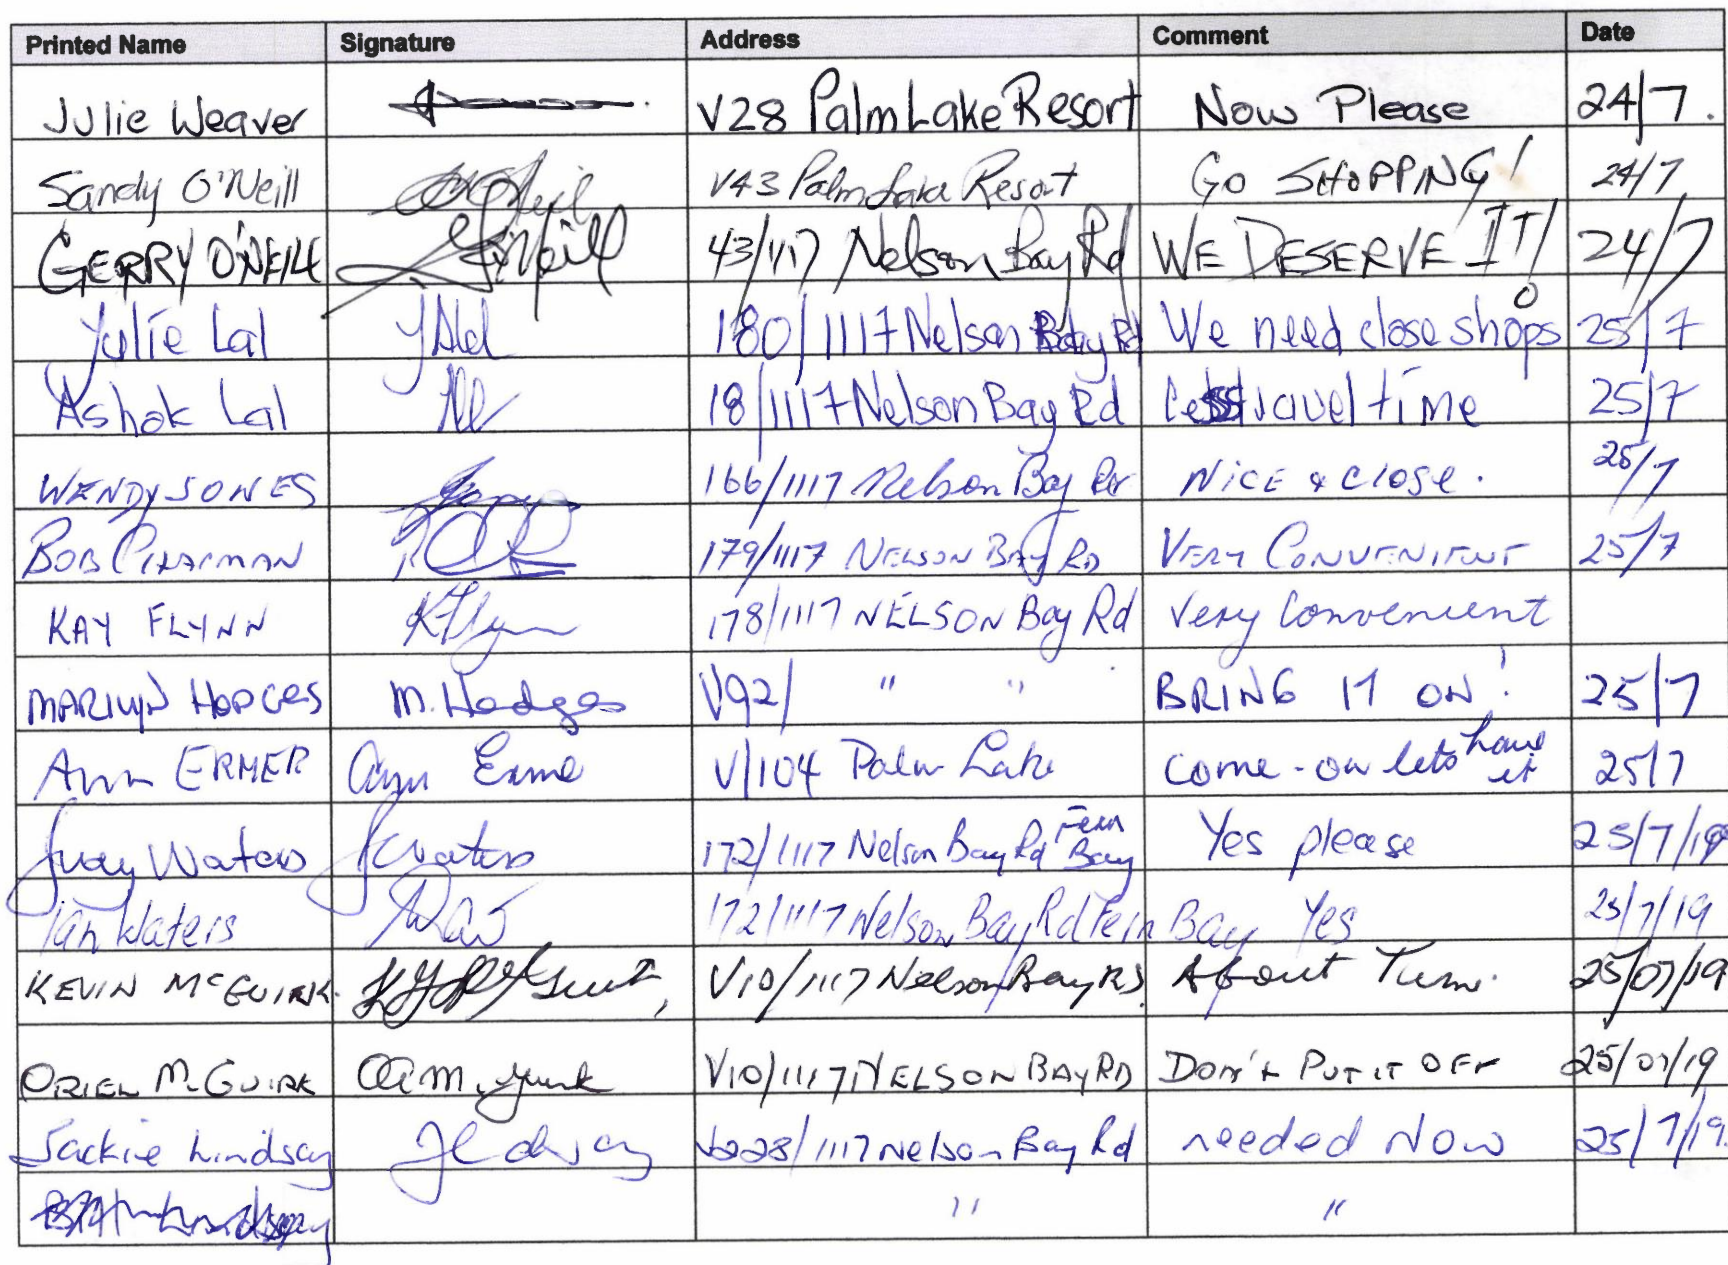 Printed Name Signature Address Comment Date
Julie Weaver V28 Palm Lake Resort Now Please 24/7.
Sandy O'Neill V43 Palm Lake Resort GO SHOPPING! 24/7
GERRY O'NEILL 43/1117 Nelson Bay Rd WE DESERVE IT! 24/7
Julie Lal 180/1117 Nelson Bay Rd We need close shops 25/7
Ashok Lal 18/1117 Nelson Bay Rd less travel time 25/7
WENDY JONES 166/1117 Nelson Bay Rd NiCE & Close. 25/7
BOB CHAPMAN 179/1117 NELSON BAY RD VERY CONVENIENT 25/7
KAY FLYNN KFlynn 178/1117 NELSON Bay Rd Very Convenient
MARILYN HODGES M. Hodges V92/ " " BRING IT ON! 25/7
Ann ERMER Ann V/104 Palm Lake Come-on lets have it 25/7
Judy Waters JWaters 172/1117 Nelson Bay Rd Fern Bay Yes please 25/7/19
Ian Waters 172/1117 Nelson Bay Rd Fern Bay Yes 25/7/19
KEVIN McGUIRK. V10/1117 Nelson Bay RD. About Time. 25/07/19
ORIEL McGUIRK V10/1117 NELSON BAY RD DON'T PUT IT OFF 25/07/19
Jackie Lindsay V228/1117 Nelson Bay Rd needed Now 25/7/19.
Lindsay " "